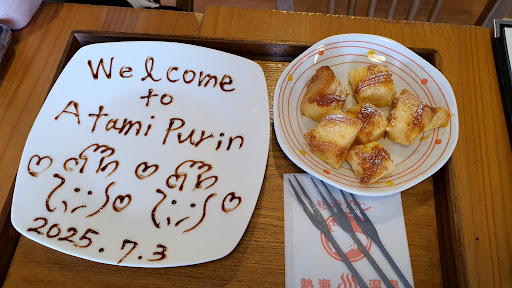 Welcome
to
Atami Purin
2025.7.3
熱海♨温泉